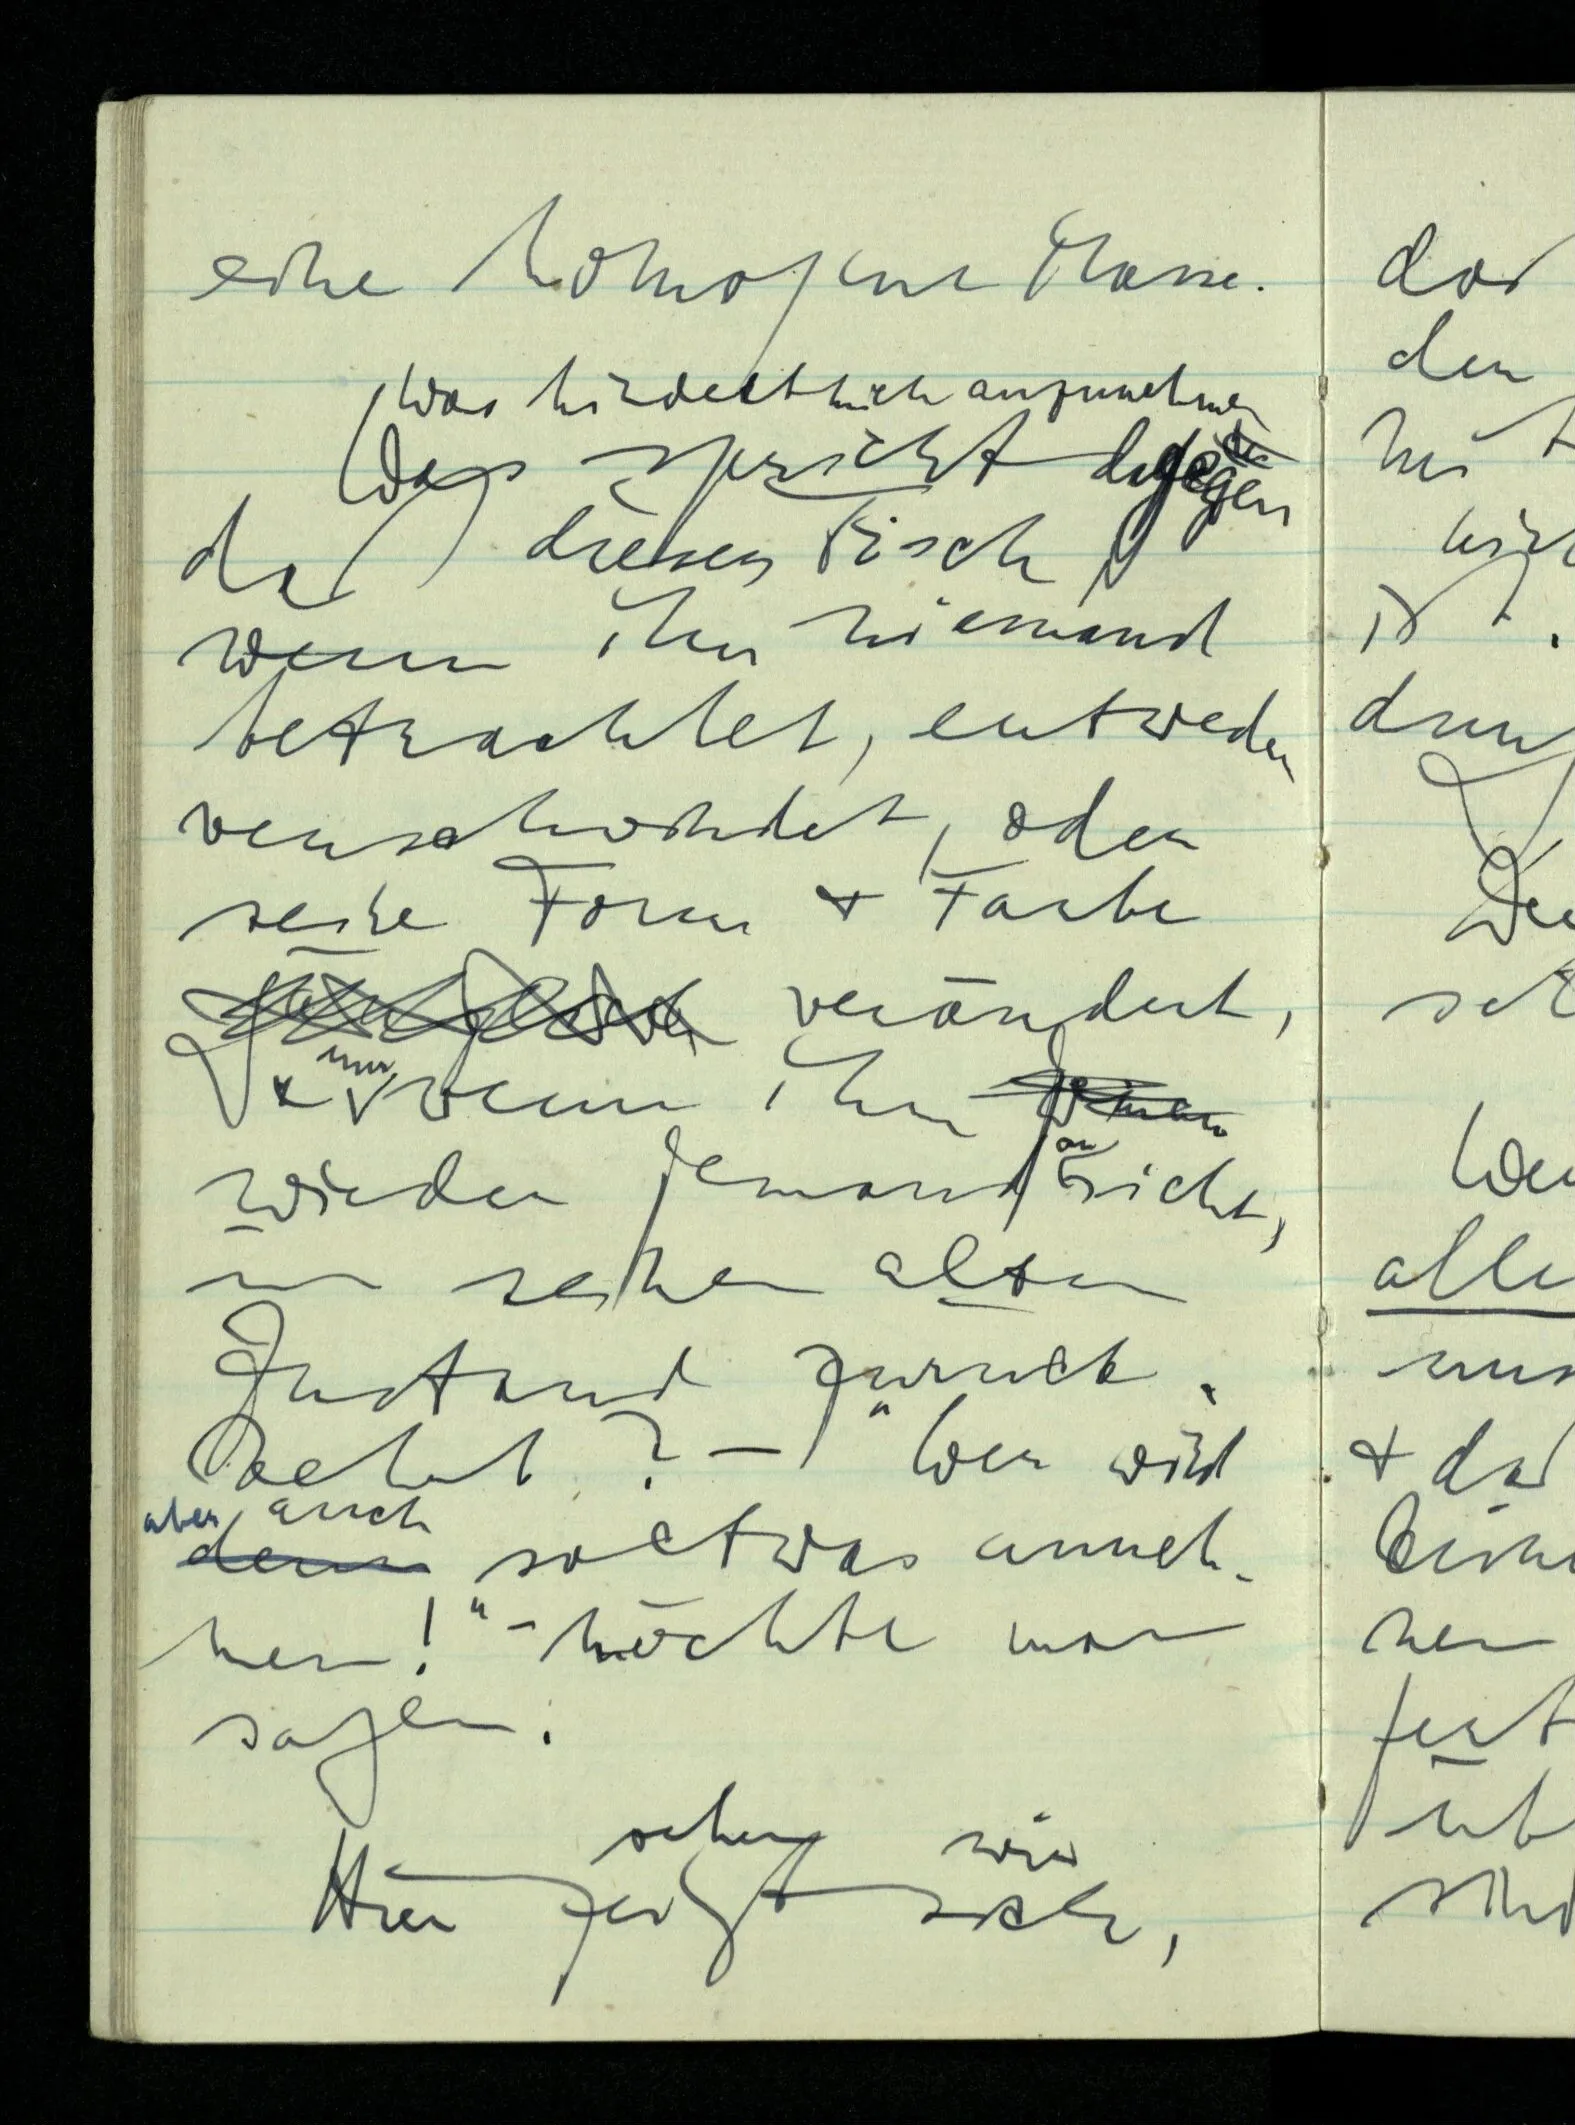 eine homogene Masse.
Was hindert mich anzunehmen
Was spricht dagegen
daß dieser Tisch,
wenn ihn niemand
betrachtet, entweder
verschwindet, oder
seine Form + Farbe
verändert,
+ nun wenn ihn
wieder jemand ansieht,
in seinen alten
Zustand zurück-
kehrt? – "Wer wird
aber auch
denn so etwas anneh-
men!" – möchte man
sagen.
sehen wir
Hier zeigt sich,
daß
den
alle
+ daß